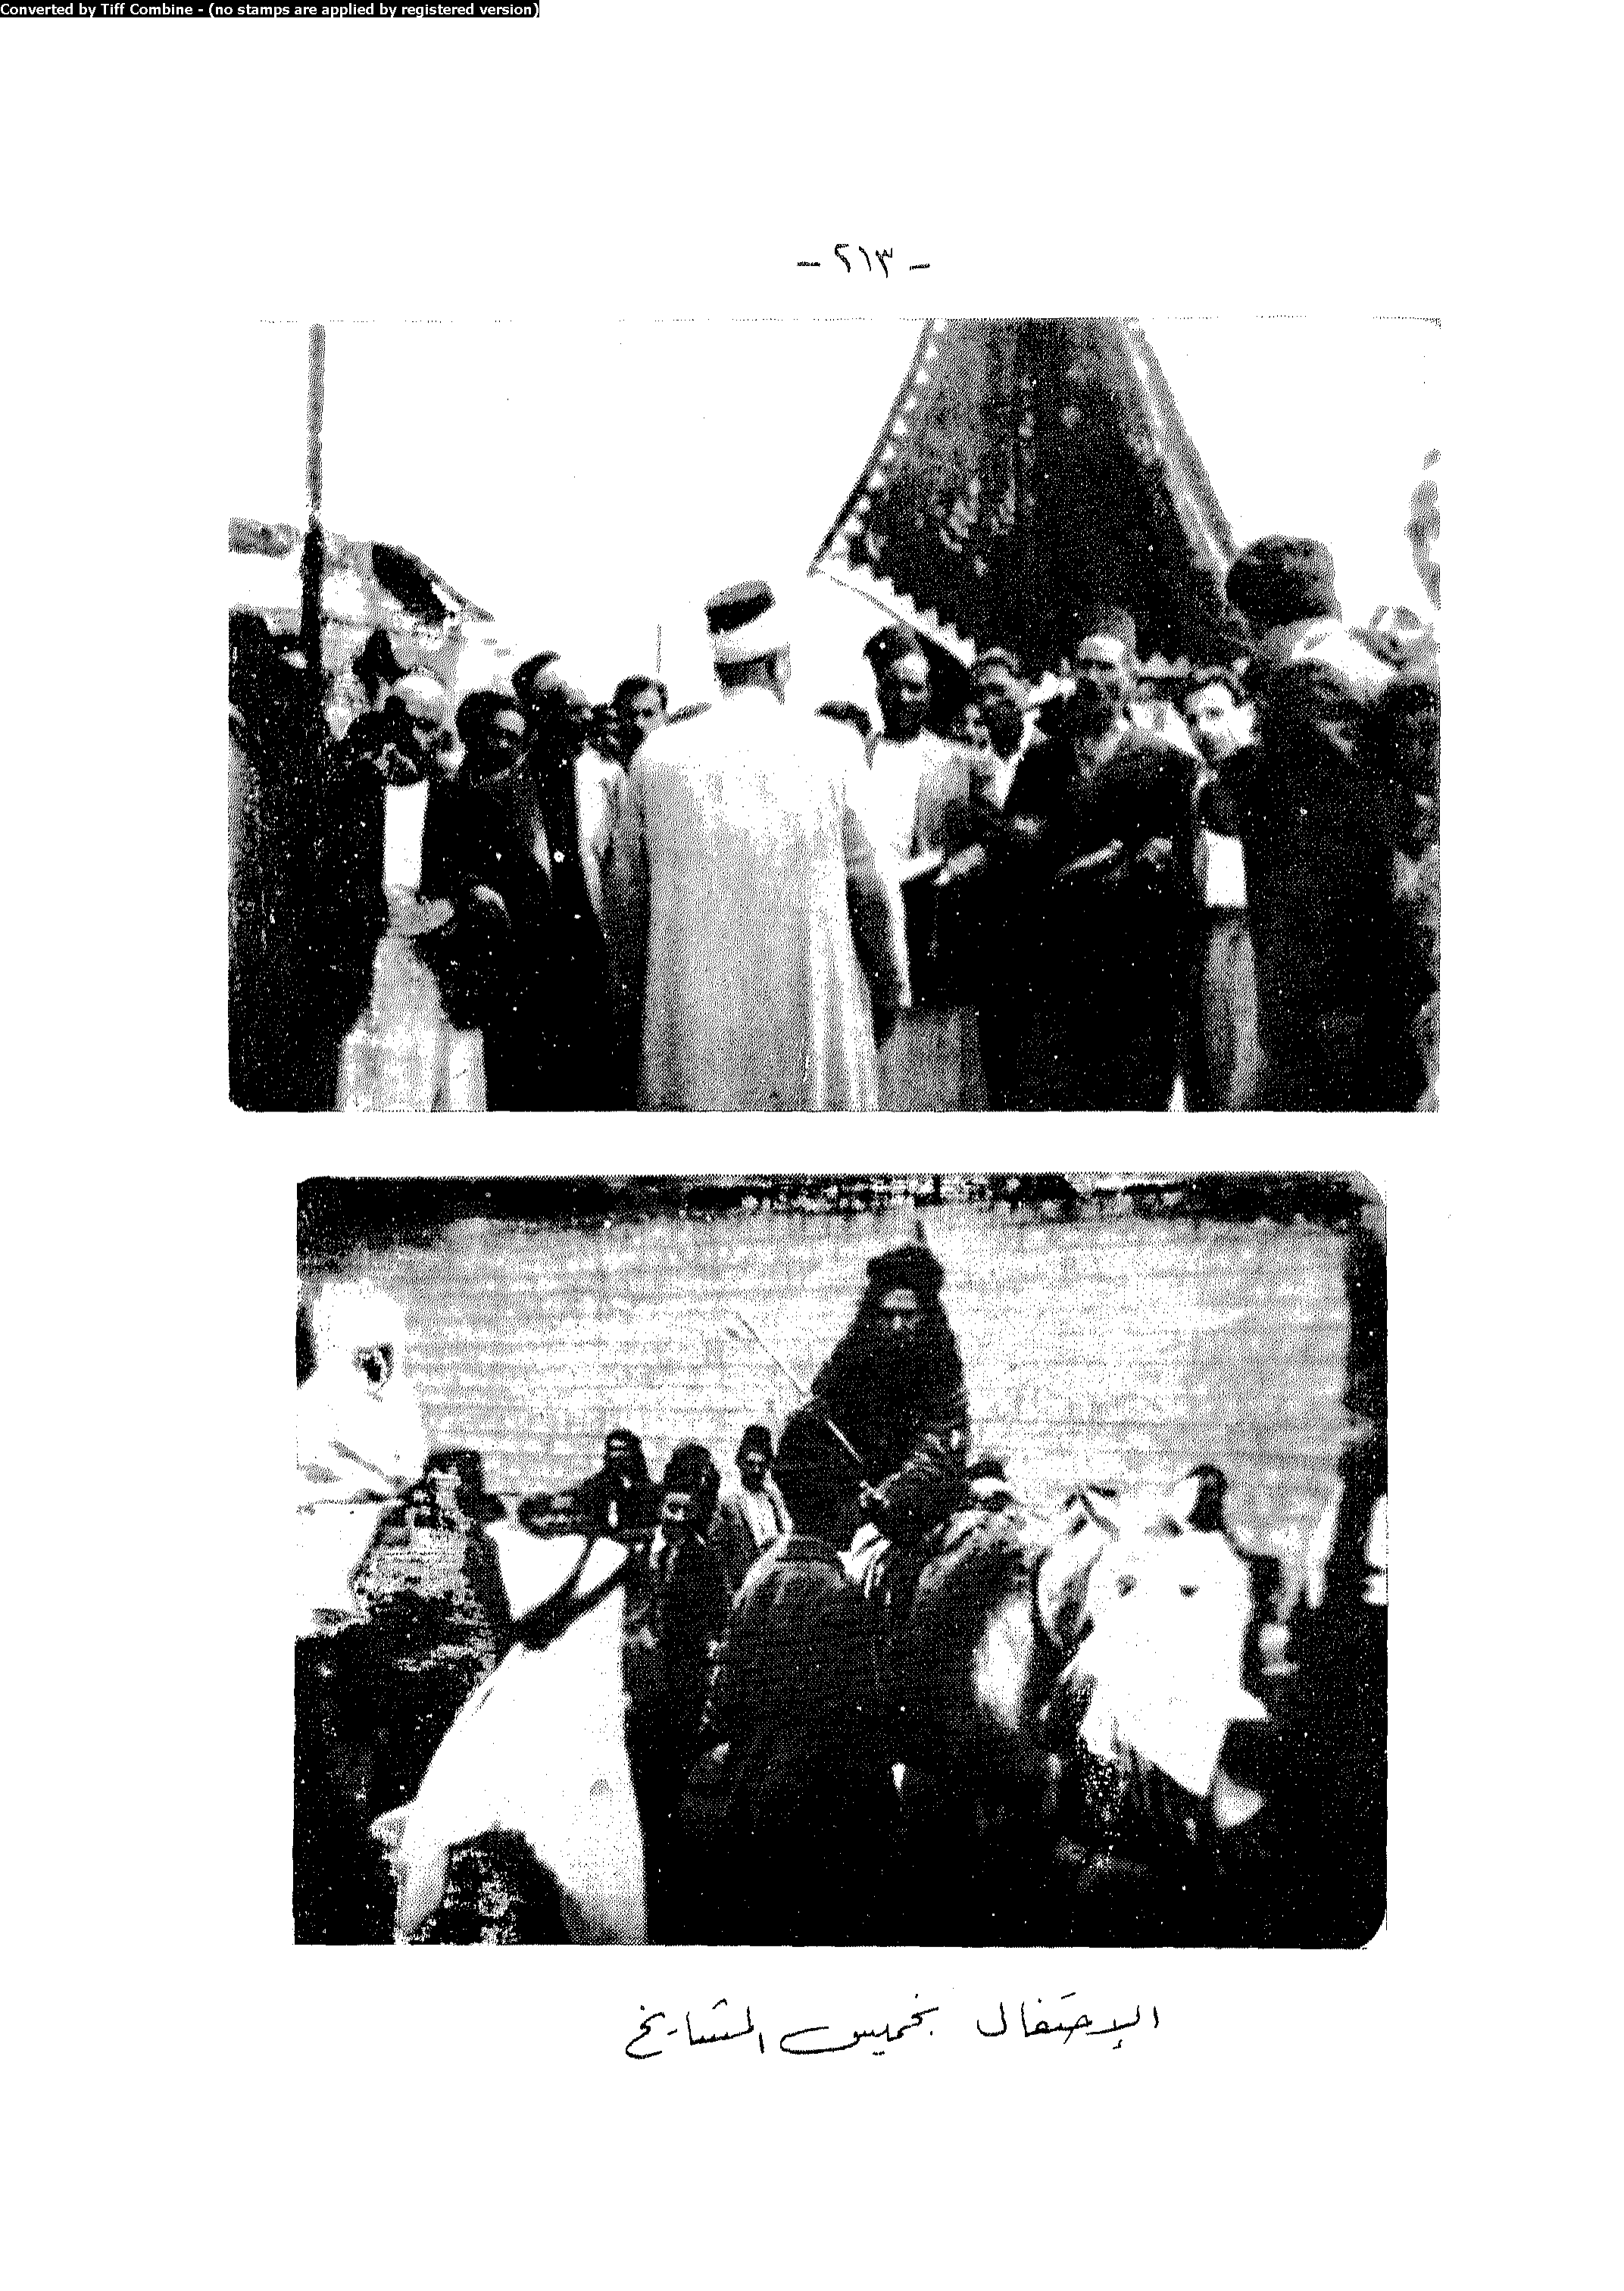 Converted by Tiff Combine - (no stamps are applied by registered version)
- ٢١٣ -
الإحتفال بخميس المشايخ